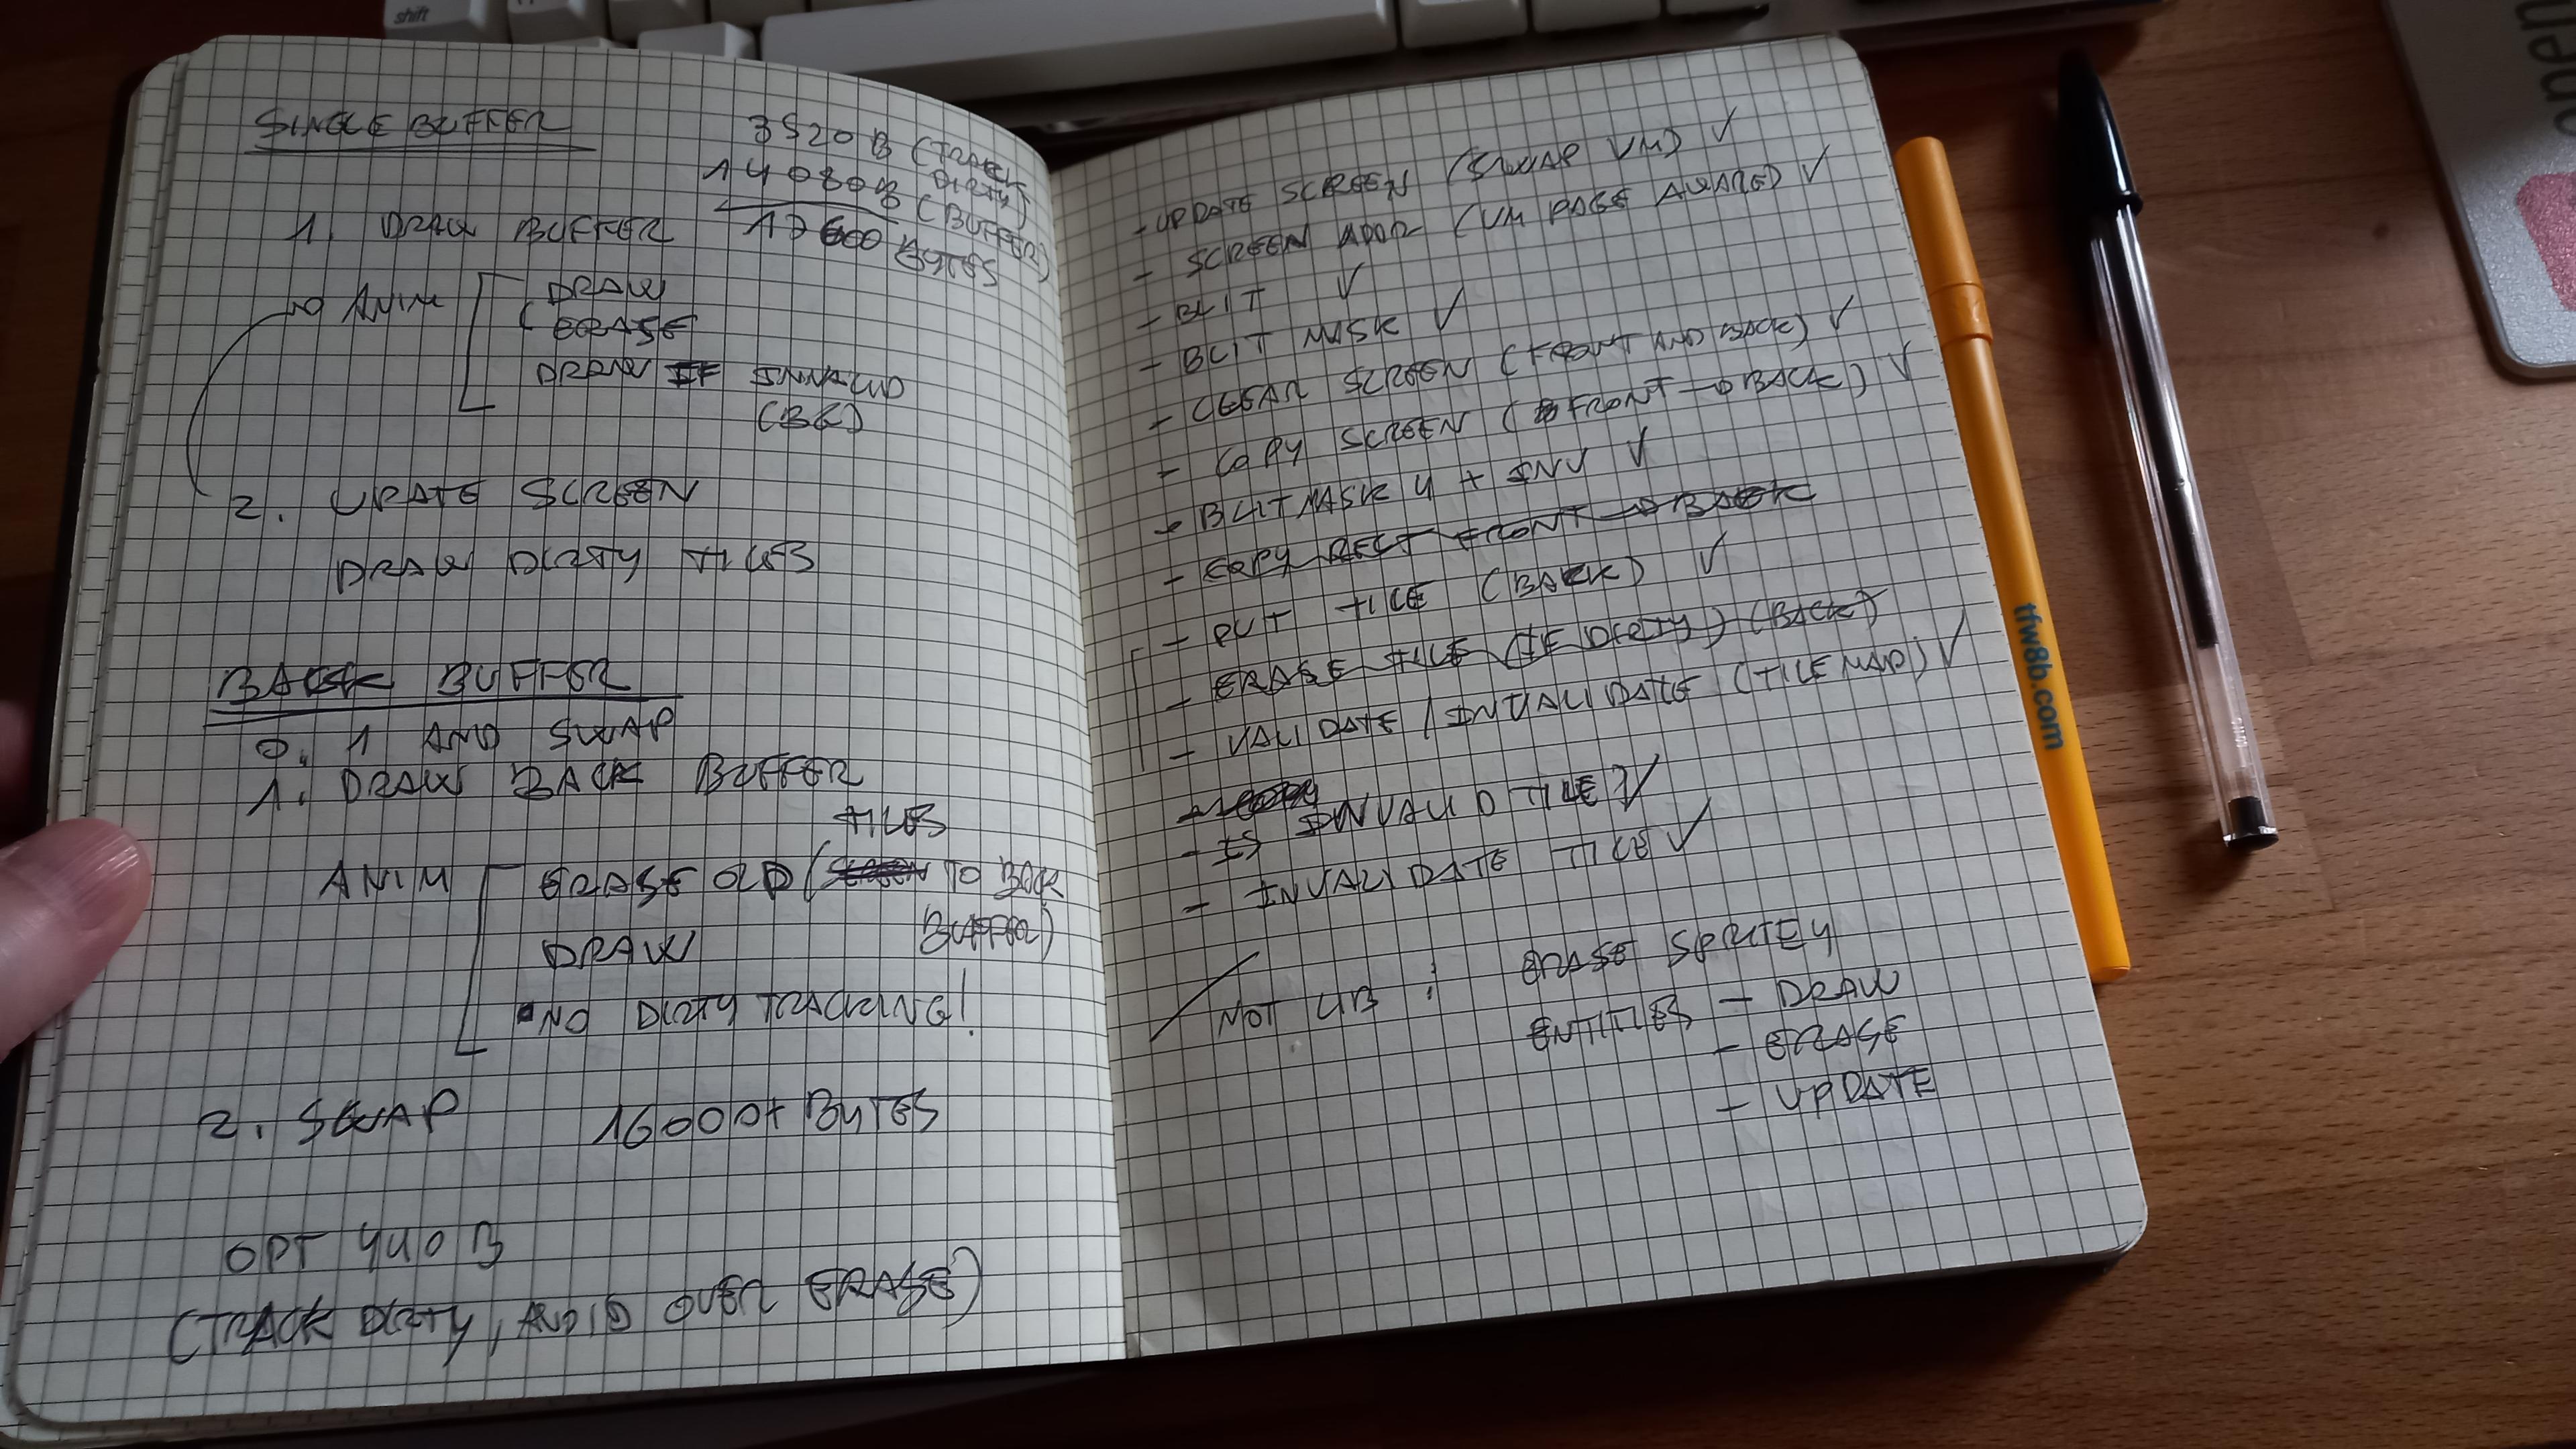 shift
SINGLE BUFFER
3520 B (TRACK DIRTY)
14080 B (BUFFER)
17600 BYTES
1. DRAW BUFFER
ANIM
DRAW
ERASE
DRAW IF INVALID
(BG)
2. UPATE SCREEN
DRAW DIRTY TILES
BACK BUFFER
0. 1 AND SWAP
1. DRAW BACK BUFFER
TILES
ANIM
ERASE OLD (SCREEN TO BACK BUFFER)
DRAW
NO DIRTY TRACKING!
2. SWAP 16000+ BYTES
OPT 440 B
(TRACK DIRTY, AVOID OVER ERASE)
- UPDATE SCREEN (SWAP VM) ✓
- SCREEN ADDR (VM PAGE AWARE) ✓
- BLIT ✓
- BLIT MASK ✓
- CLEAR SCREEN (FRONT AND BACK) ✓
- COPY SCREEN (FRONT → BACK) ✓
- BLIT MASK 4 + INV ✓
- COPY RECT FRONT → BACK
- PUT TILE (BACK) ✓
- ERASE TILE (IF DIRTY) (BACK)
- VALIDATE / INVALIDATE (TILE MAP) ✓
- IS INVALID TILE? ✓
- INVALIDATE TILE ✓
NOT LIB : ERASE SPRITE4
ENTITIES - DRAW
- ERASE
- UPDATE
tfw8b.com
open